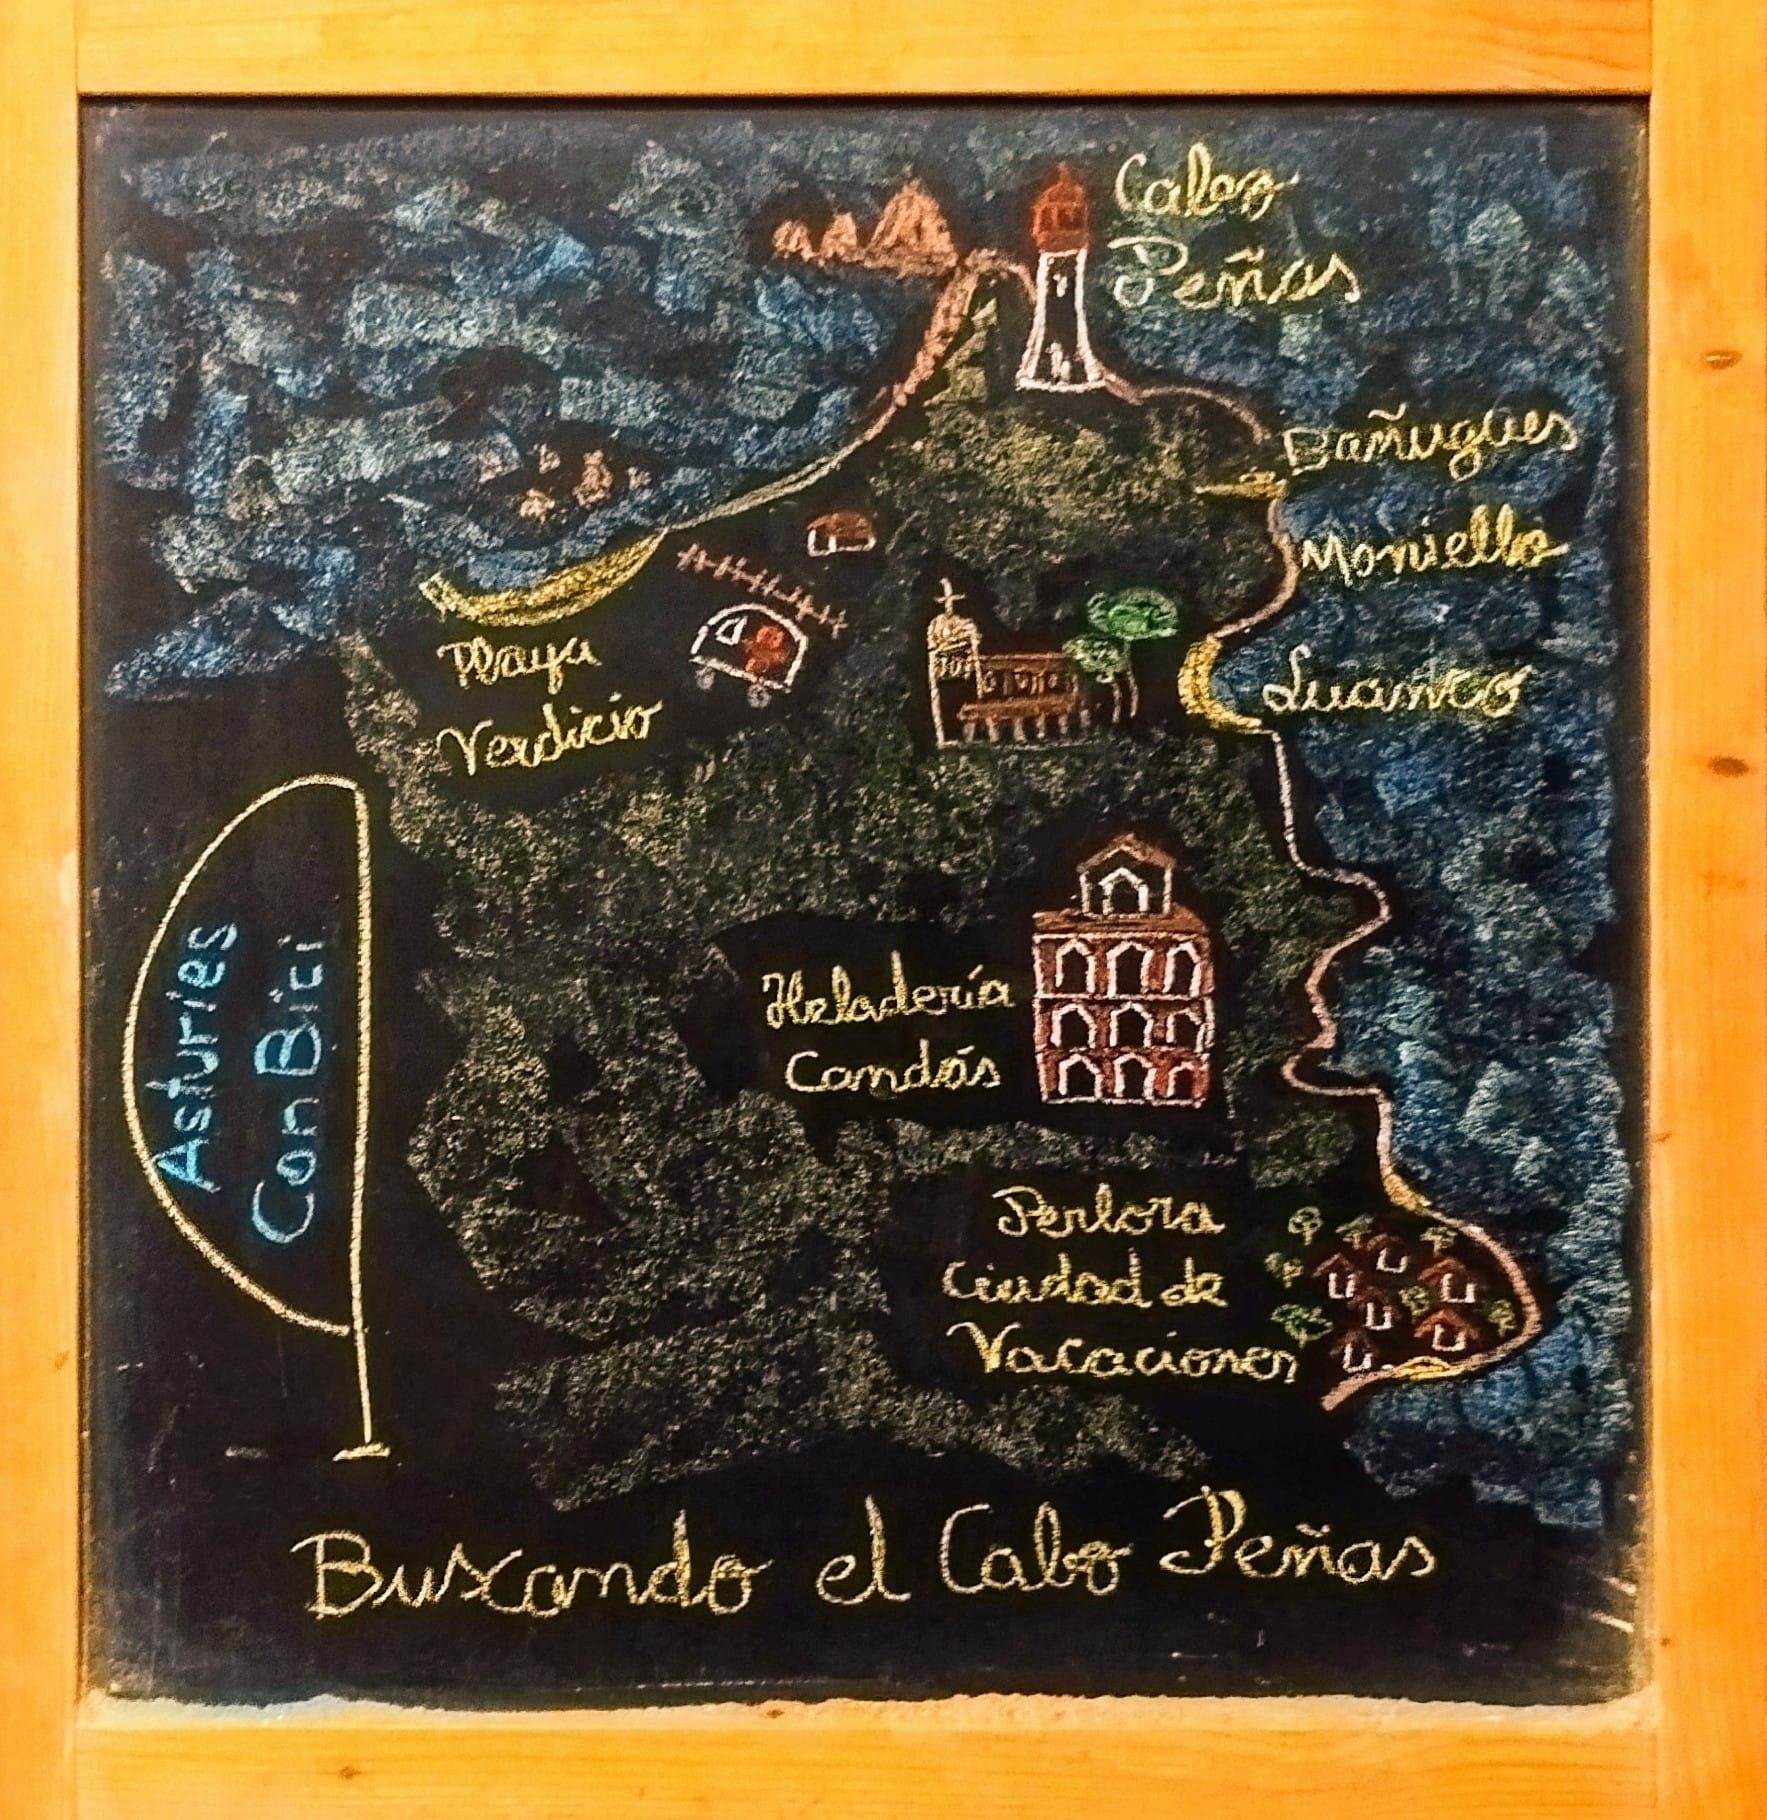 Cabo
Peñas
Bañugues
Moniello
Luanco
Playa
Verdicio
Asturies
Con Bici
Heladería
Candás
Perlora
Ciudad de
Vacaciones
Buscando el Cabo Peñas